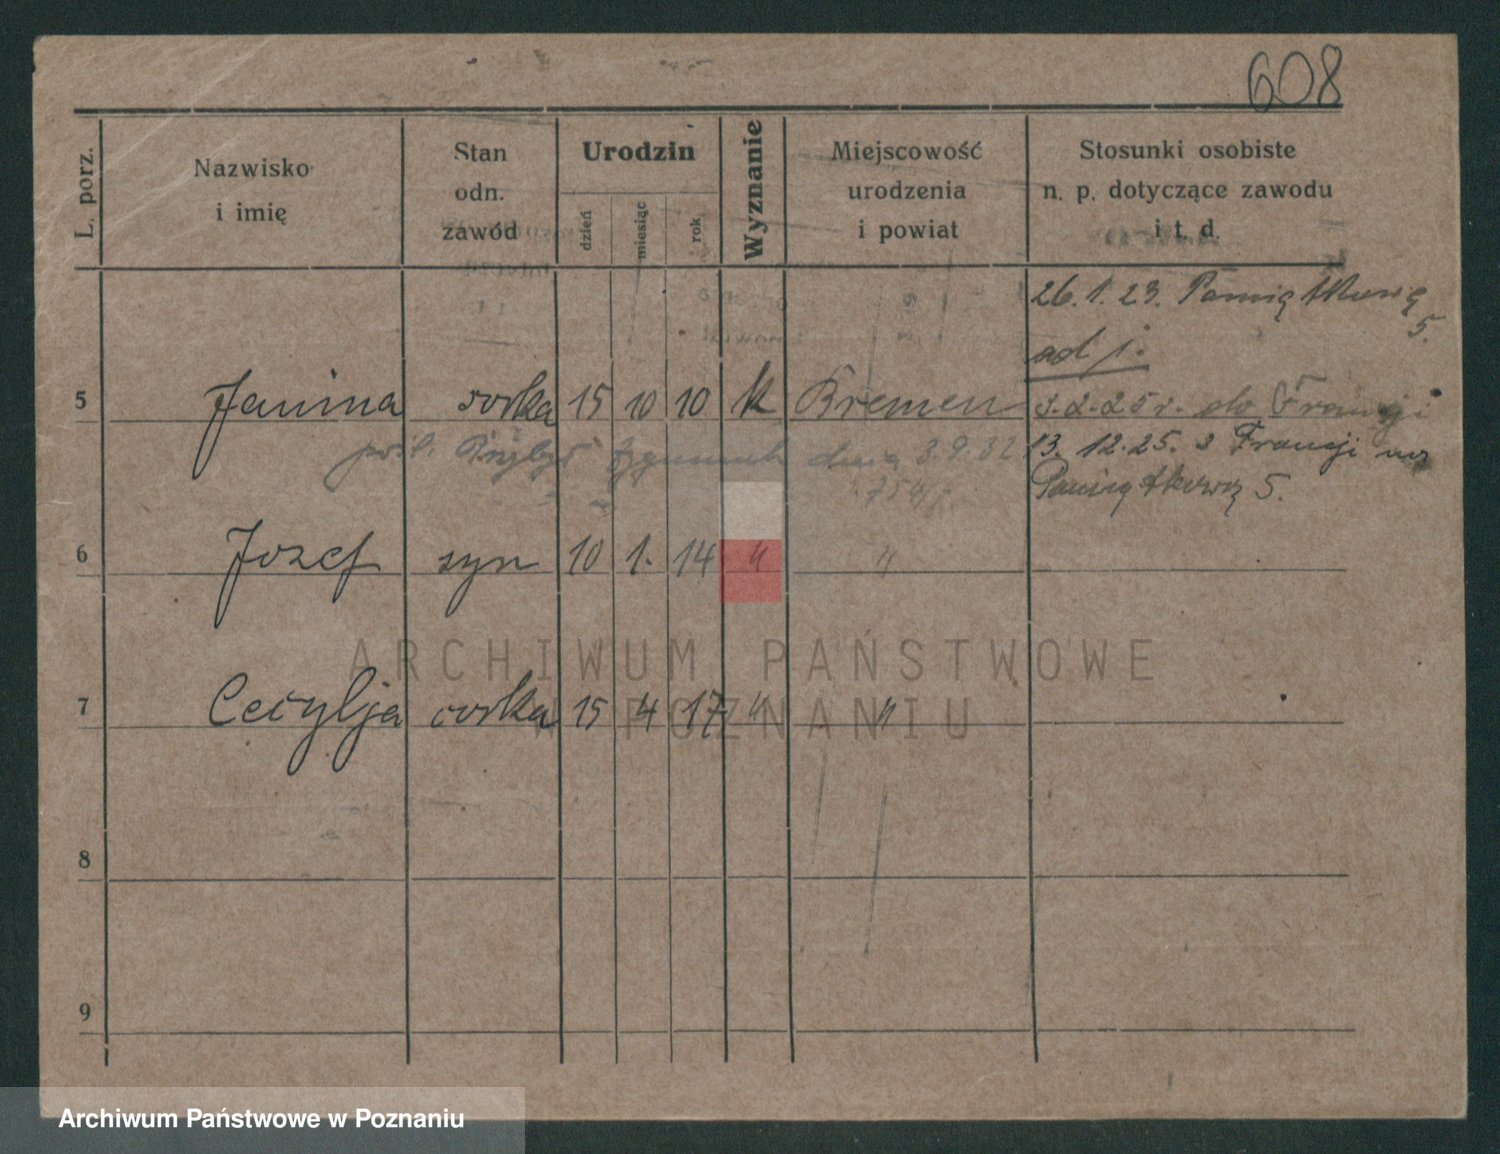 608
L. porz.
Nazwisko
i imię
Stan
odn.
zawód
Urodzin
dzień
miesiąc
rok
Wyznanie
Miejscowość
urodzenia
i powiat
Stosunki osobiste
n. p. dotyczące zawodu
i t. d.
26.1.23.
5.
ad j.
5 Janina corka 15 10 10 k Bremen 3.2.25 r. do Francji
dnia 3.9.32 13.12.25. z Francji na
5.
6 Jozef syn 10 1. 14 " "
ARCHIWUM PAŃSTWOWE
7 Cecylja corka 15 4 17 " "
W POZNANIU
8
9
Archiwum Państwowe w Poznaniu